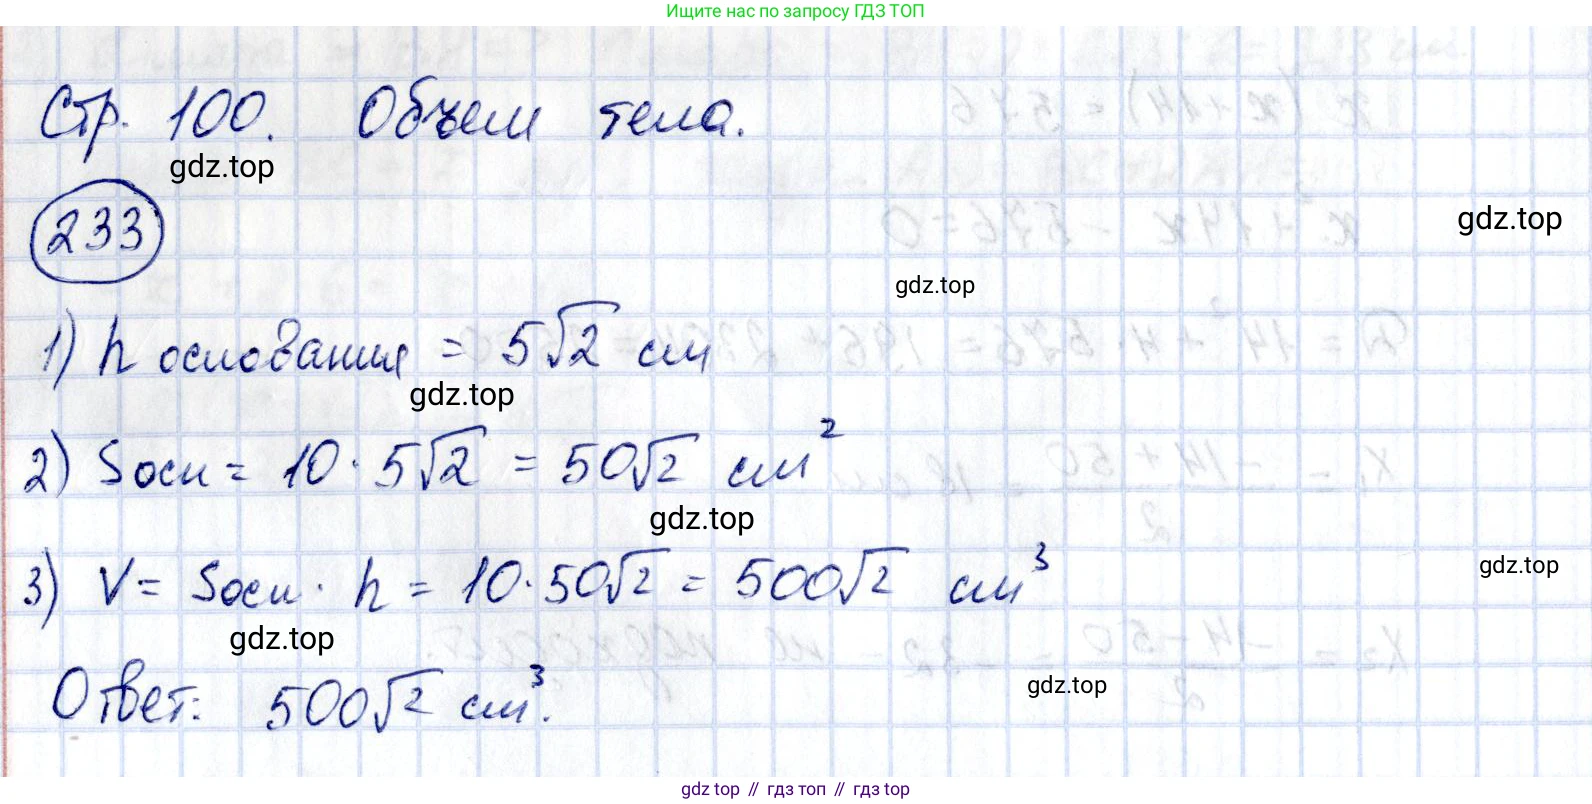 Ищите нас по запросу ГДЗ ТОП
Стр. 100. Объем тела.
gdz.top
233
gdz.top
gdz.top
1) h основания = 5√2 см
gdz.top
2) Sосн = 10 · 5√2 = 50√2 см²
gdz.top
3) V = Sосн · h = 10 · 50√2 = 500√2 см³
gdz.top
gdz.top
Ответ: 500√2 см³.
gdz.top
gdz top // гдз топ // гдз top